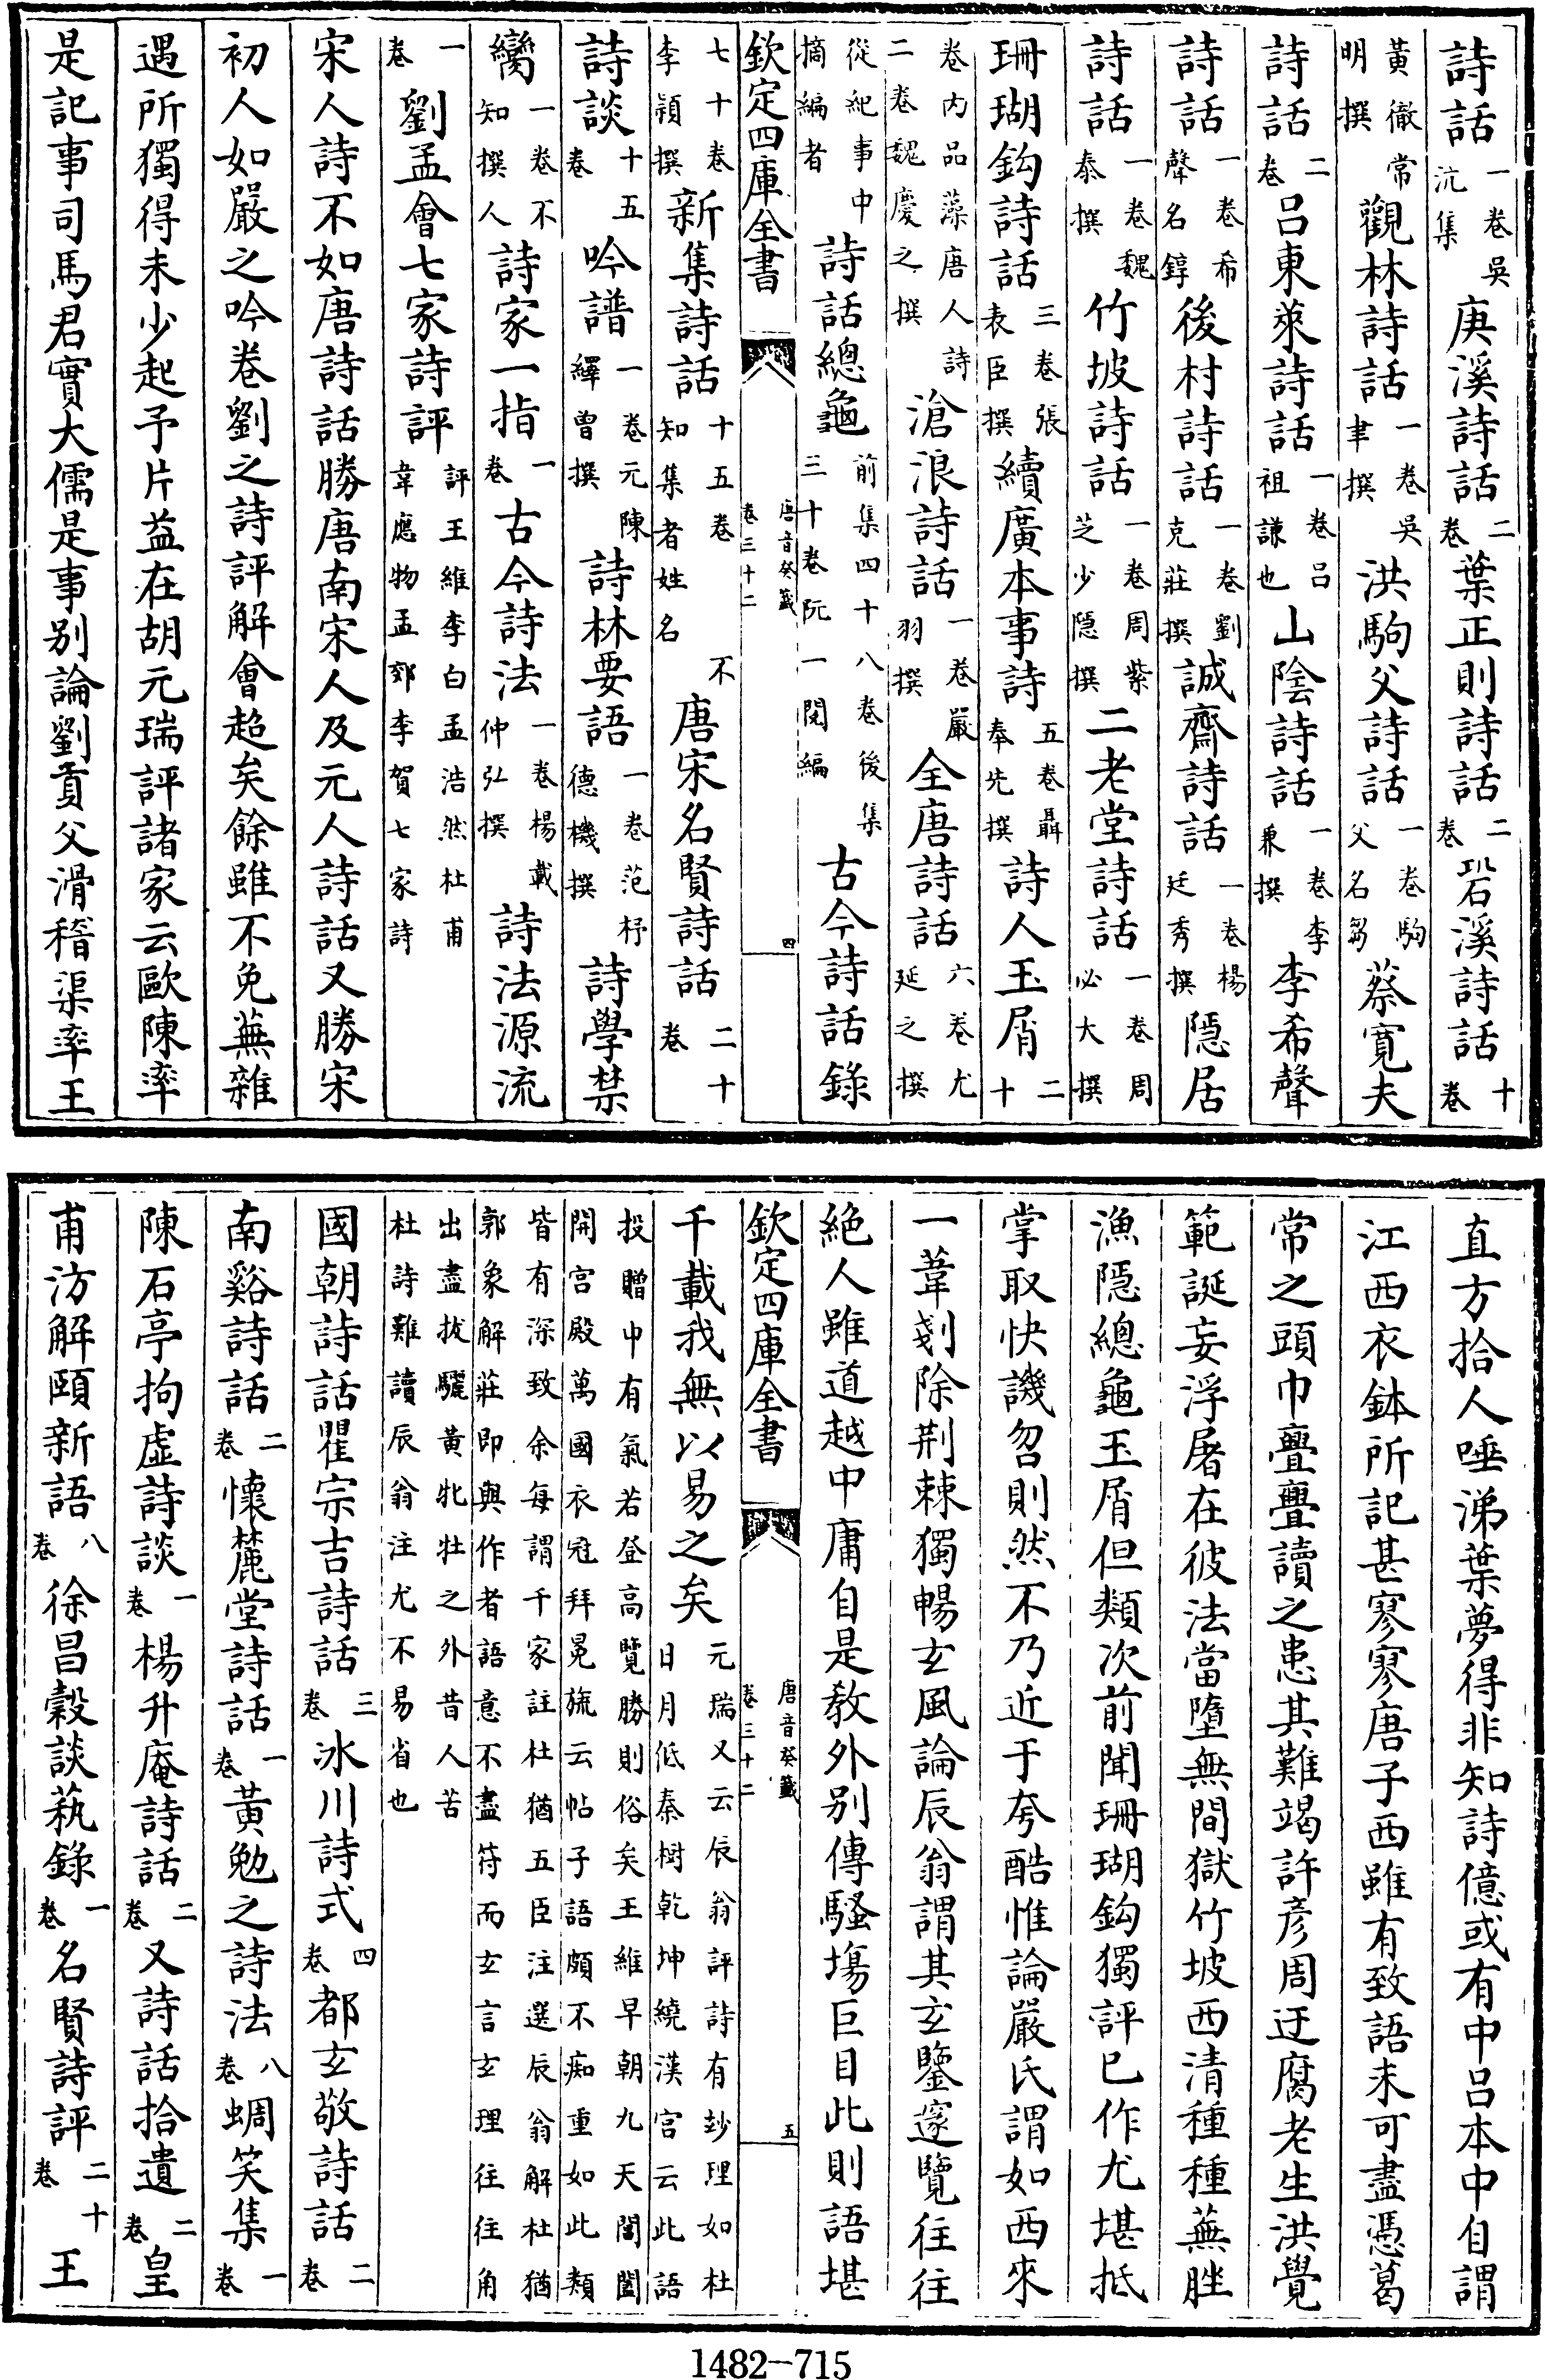 詩話一卷吳沆集庚溪詩話二卷葉正則詩話二卷䂬溪詩話十卷
黃徹常明撰觀林詩話一卷吳聿撰洪駒父詩話一卷駒父名芻蔡寛夫
詩話二卷呂東萊詩話一卷呂祖謙也山陰詩話一卷李兼撰李希聲
詩話一卷希聲名錞後村詩話一卷劉克莊撰誠齋詩話一卷楊廷秀撰隱居
詩話一卷魏泰撰竹坡詩話一卷周紫芝少隱撰二老堂詩話一卷周必大撰
珊瑚鈎詩話三卷張表臣撰續廣本事詩五卷聶奉先撰詩人玉屑二十
卷內品藻唐人詩二卷魏慶之撰滄浪詩話一卷嚴羽撰全唐詩話六卷尤延之撰
從紀事中摘編者詩話總龜前集四十八卷後集三十卷阮一閱編古今詩話錄
欽定四庫全書 唐音癸籖卷三十二 四
七十卷李頴撰新集詩話十五卷知集者姓名不唐宋名賢詩話二十卷
詩談十五卷吟譜一卷元陳繹曾撰詩林要語一卷范梈德機撰詩學禁
臠一卷不知撰人詩家一指一卷古今詩法一卷楊載仲弘撰詩法源流
一卷劉孟會七家詩評評王維李白孟浩然杜甫韋應物孟郊李賀七家詩
宋人詩不如唐詩話勝唐南宋人及元人詩話又勝宋
初人如嚴之吟卷劉之詩評解會超矣餘雖不免蕪雜
遇所獨得未少起予片益在胡元瑞評諸家云歐陳率
是記事司馬君實大儒是事别論劉貢父滑稽渠率王
直方拾人唾涕葉夢得非知詩億或有中吕本中自謂
江西衣鉢所記甚寥寥唐子西雖有致語未可盡憑葛
常之頭巾亹亹讀之患其難竭許彦周迂腐老生洪覺
範誕妄浮屠在彼法當墮無間獄竹坡西清種種蕪脞
漁隱總龜玉屑但類次前聞珊瑚鈎獨評已作尤堪抵
掌取快譏訇則然不乃近于夸酷惟論嚴氏謂如西來
一葦剗除荆棘獨暢玄風論辰翁謂其玄鑒邃覽往往
絶人雖道越中庸自是教外别傳騷塲巨目此則語堪
欽定四庫全書 唐音癸籖卷三十二 五
千載我無以易之矣元瑞又云辰翁評詩有玅理如杜日月低秦樹乾坤繞漢宫云此語
投贈中有氣若登高覽勝則俗矣王維早朝九天閶闔開宫殿萬國衣冠拜冕旒云帖子語頗不痴重如此類
皆有深致余每謂千家註杜猶五臣注選辰翁解杜猶郭象解莊即與作者語意不盡符而玄言玄理往往角
出盡拔驪黃牝牡之外昔人苦杜詩難讀辰翁注尤不易省也
國朝詩話瞿宗吉詩話三卷冰川詩式四卷都玄敬詩話二卷
南谿詩話二卷懷麓堂詩話一卷黃勉之詩法八卷蜩笑集一卷
陳石亭拘虚詩談一卷楊升庵詩話二卷又詩話拾遺二卷皇
甫汸解頤新語八卷徐昌榖談蓺錄一卷名賢詩評二十卷王
1482-715